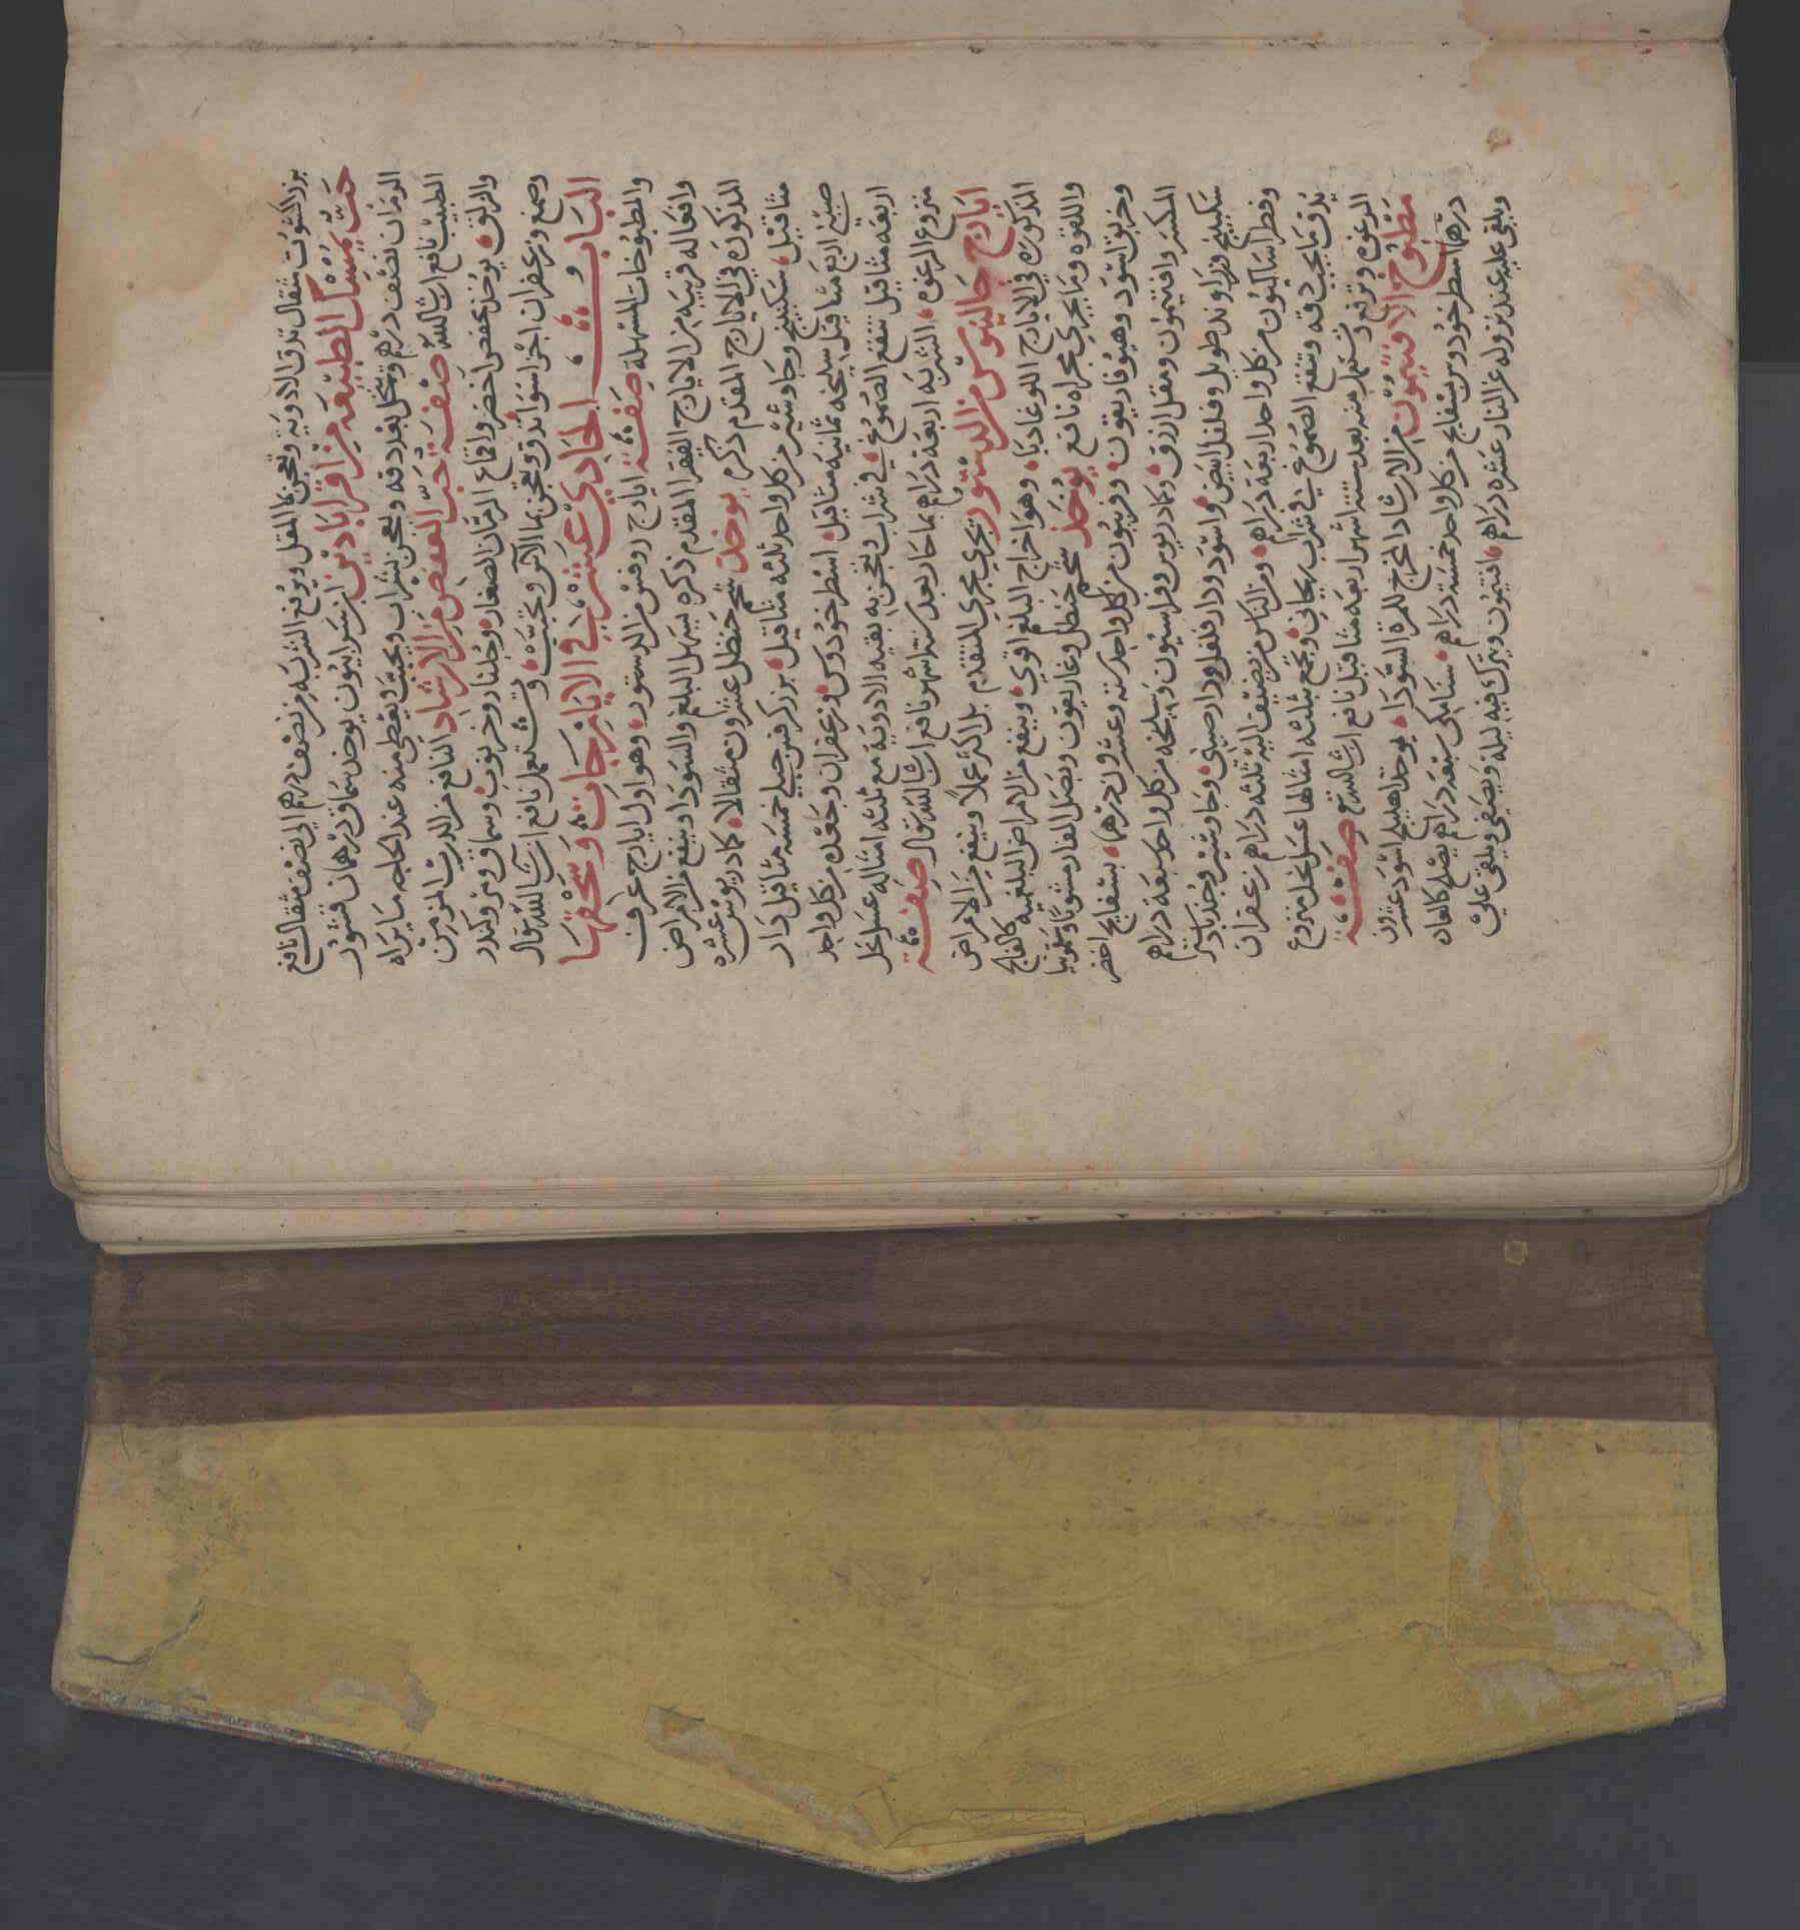 بزر كشوت مثقال تدق الادوية وتعجن بماء المقل ويرفع الشربة من نصف درهم الى نصف مثقال نافع
حب يمسك الطبيعة من اقراباذين ابن سرابيون يوخذ سماق درهمان قشور
الرمان نصف درهم وينخل بعد دقه ويعجن بشراب ويحبب ويعطى منه عند الحاجه ما يراه
الطبيب نافع ان شا الله صفة حب العفص من الارشاد النافع من الذرب المزمن
والزلق يوخذ عفص اخضر واقماع الرمان الصغار وجلنار وخرنوب وسماق وبر وكندر
وصمغ وزعفران اجزا سوا تدق وتعجن بماء الاس وتحبب وتستعمل نافع ان شا الله تعالى
الباب الحادي عشر في الايارجات وسحقها
والمطبوخات المسهلة صفة ايارج روفس من الدستور وهو اول ايارج عرف
وافعاله قريبه من الايارج الفيقرا المقدم ذكره يسهل البلغم والسودا وينفع من الامراض
المذكوره في الايارج المقدم ذكره يوخذ شحم حنظل عشرون مثقالا كمادريوس عشره
مثاقيل سكبينج وجاوشير من كل واحد ثلثه مثاقيل بزر كرفس جبلي خمسه مثاقيل دار
صيني اربع مثاقيل سليخه ثمانيه مثاقيل اسطوخودوس وزعفران وجعده من كل واحد
اربعه مثاقيل تنقع الصموغ في شراب ويعجن به بقيه الادويه مع ثلثه امثاله عسل نحل
منزوع الرغوه الشربه اربعة دراهم بماء حار بعد سته اشهر نافع ان شا الله تعالى صفة
ايارج جالينوس من الدستور يجري مجرى المتقدم بل اكثر عملا وينفع من الامراض
المذكوره في الايارج اللوغاديا وهو اخراج البلغم اقوي وينفع من الامراض البلغميه كالفالج
واللقوه وما يجري مجراه نافع يوخذ شحم حنظل وغاريقون وبصل الفار مشويا وسقمونيا
وخربق اسود وهيوفاريقون وفربيون من كل واحد سته وعشرون درهما بسفايج اخضر
المكسر وافتيمون ومقل ازرق وكمادريوس وفراسيون وسليخه من كل واحد سبعة دراهم
سكبينج وزراوند طويل وفلفل ابيض واسود ودار فلفل ودار صيني وجاوشير وجندبادستر
وفطراساليون من كل واحد اربعة دراهم ومن الناس من يضيف اليه ثلثه دراهم زعفران
يدق ما يجب دقه وتنقع الصموغ في شراب ريحاني ويجمع بثلثه امثالها عسل نحل منزوع
الرغوه وترفع وتستعمل منه بعد ستة اشهر اربعه مثاقيل نافع ان شا الله تعالى صفة
مطبوخ الافتيمون من الارشاد المخرج للمرة السودا يوخذ اهليلج اسود عشرون
درهما اسطوخودوس بسفايج من كل واحد خمسة دراهم سنا مكي سبعة دراهم يصلي كالعاده
ويلقي عليه عند نزوله عن النار عشره دراهم افتيمون ويترك فيه ليلة ويصفى ويلقى على